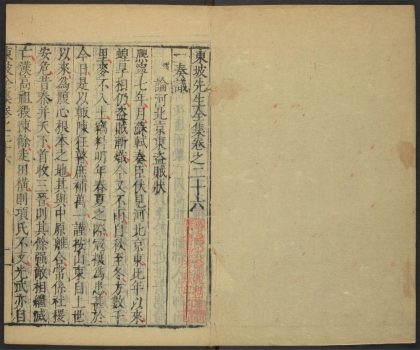 東坡先生全集卷之二十六
奏議
論河北京東盜賊狀
熙寧七年 月蘇軾奏臣伏見河北京東比年以來
蝗旱相仍盜賊漸熾今又不雨自秋至冬方數千
里麥不入土竊料明年春夏之際寇攘為患甚於
今日是以輒陳狂瞽庶補萬一謹按山東自上世
以來為腹心根本之地其與中原離合常係社稷
安危昔秦并天下首收三晉則其餘强敵相繼滅
亡漢高祖殺陳餘走田橫則項氏不支光武亦自
東坡全集卷之二六